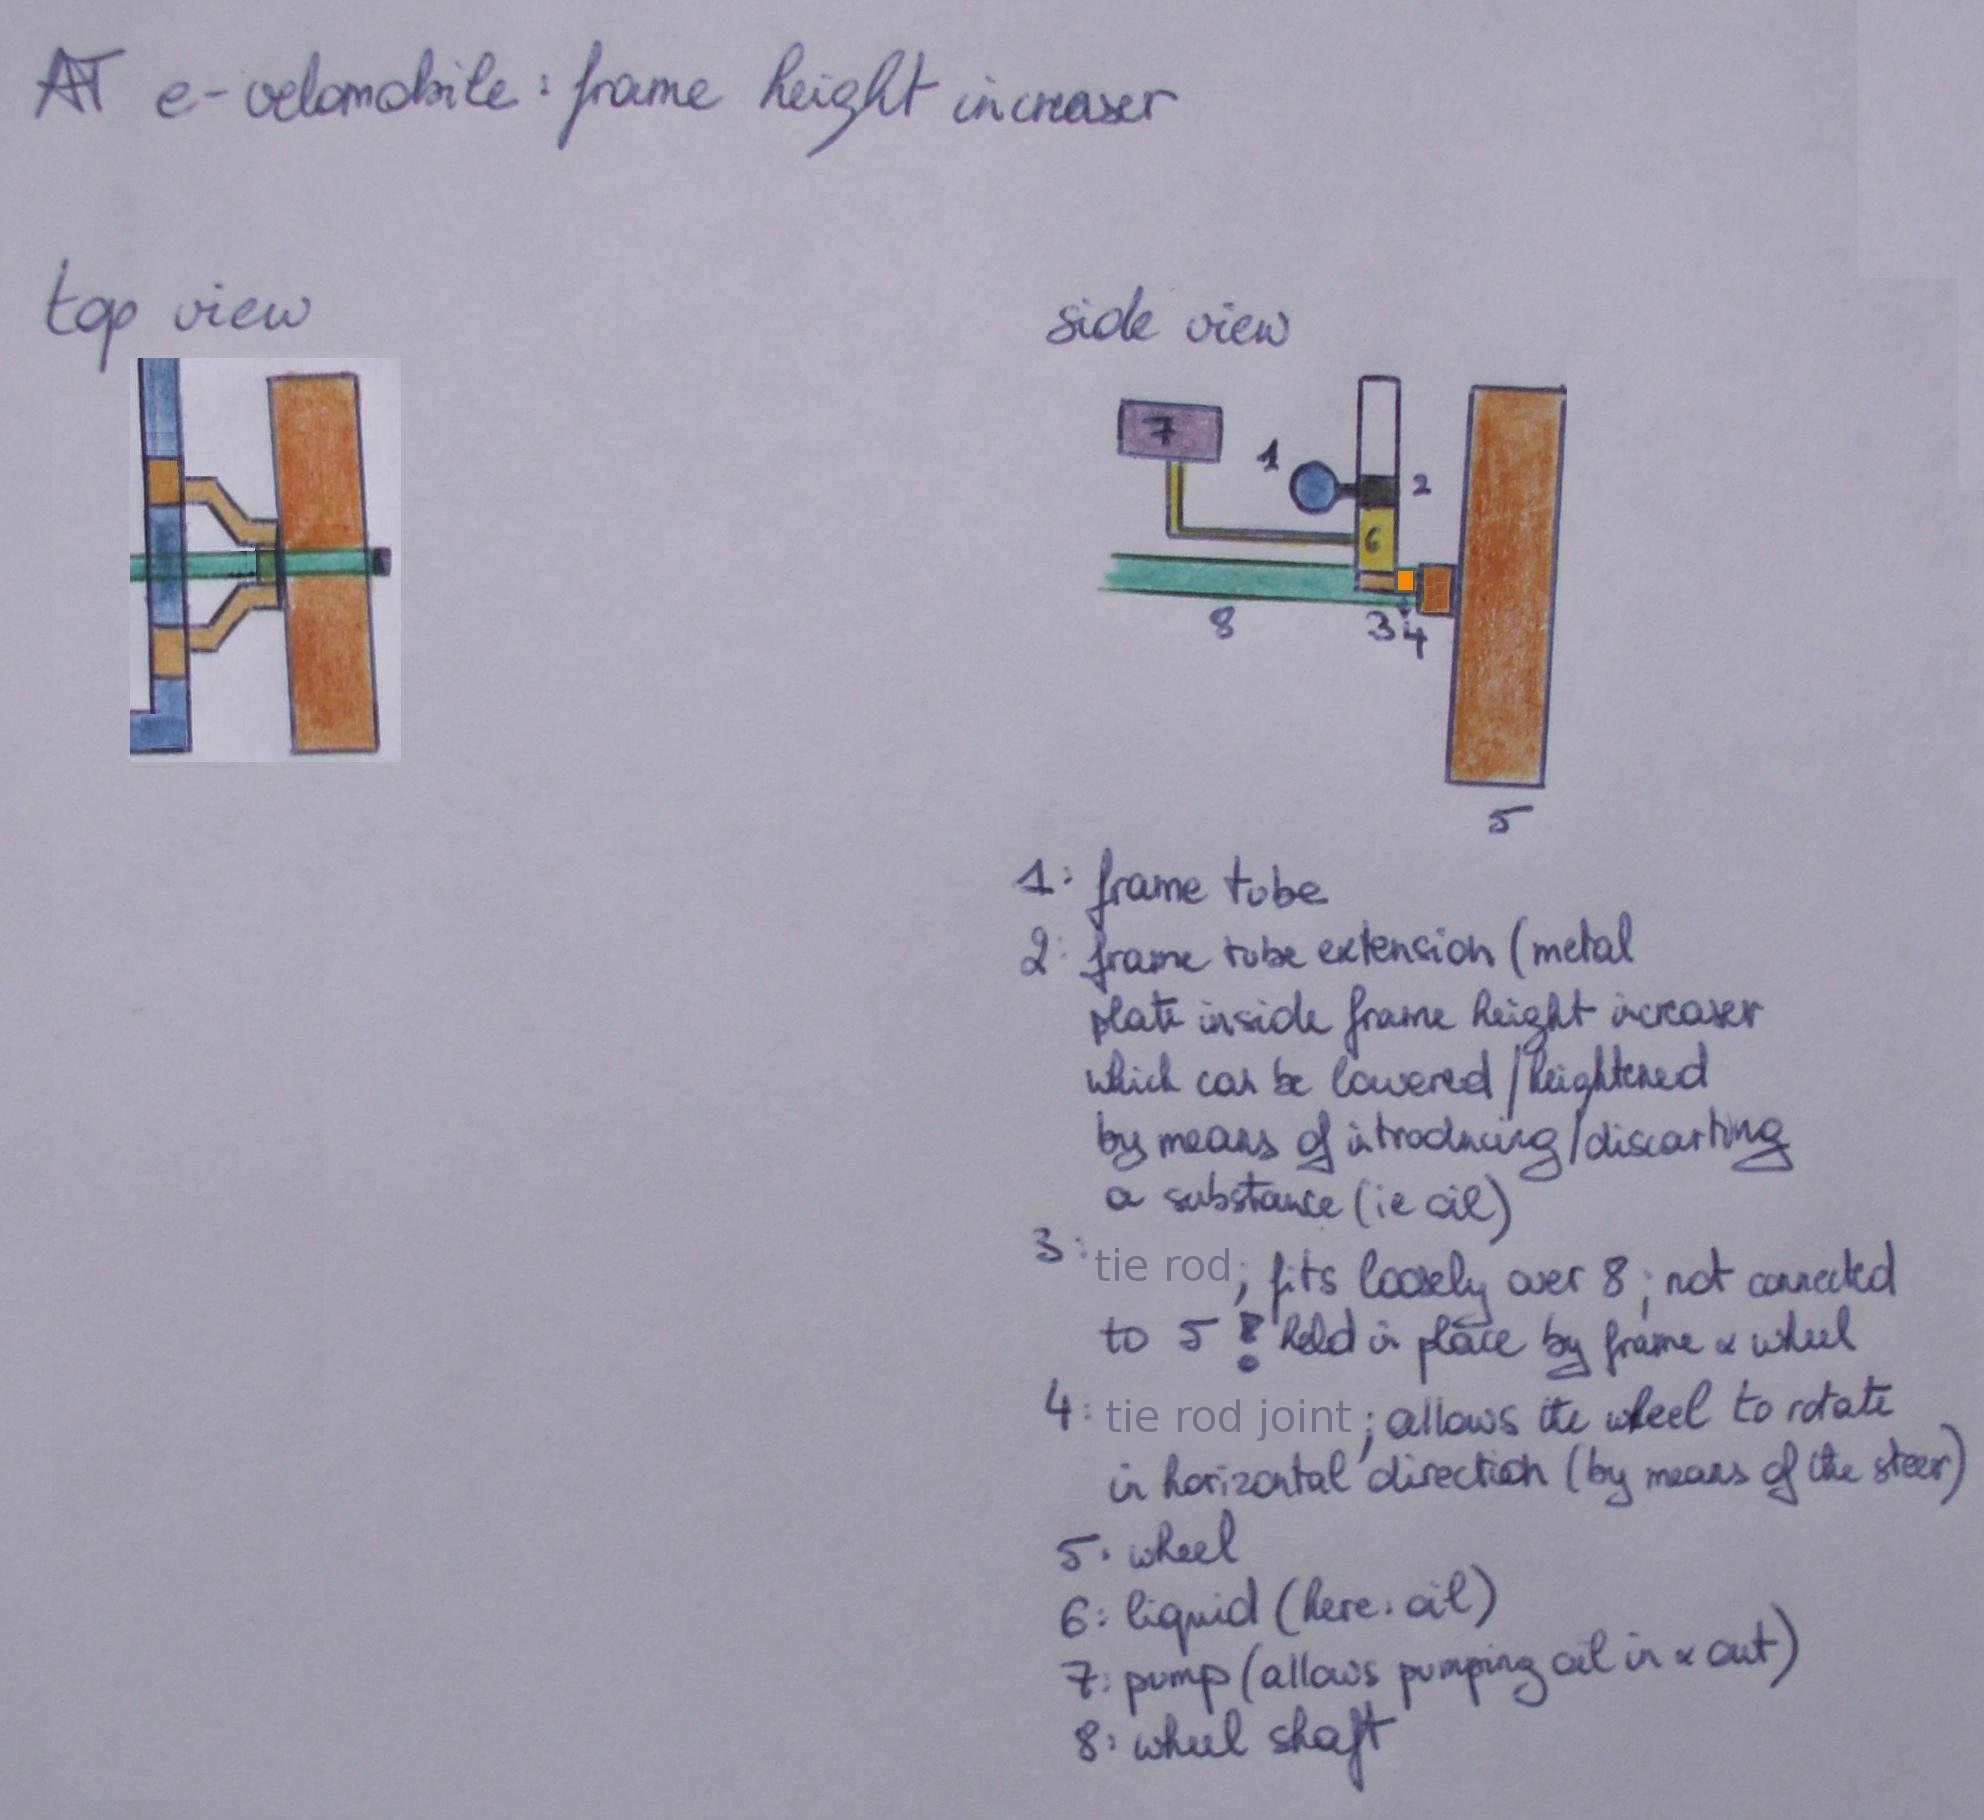 AT e-velomobile: frame height increaser
top view
side view
7
1
2
6
8
3
4
5
1: frame tube
2: frame tube extension (metal
plate inside frame height increaser
which can be lowered/heightened
by means of introducing/discarting
a substance (ie oil)
3: tie rod; fits loosely over 8; not connected
to 5 ! held in place by frame & wheel
4: tie rod joint; allows the wheel to rotate
in horizontal direction (by means of the steer)
5: wheel
6: liquid (here: oil)
7: pump (allows pumping oil in & out)
8: wheel shaft